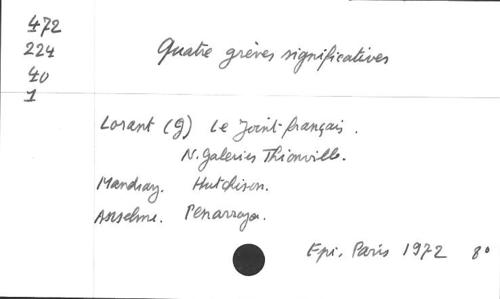 472
224
40
1
Quatre grèves significatives
Lorant (G) Le Joint-français.
N. Galeries Thionville.
Mandray. Hutchison.
Anselme. Penarroya.
Epi. Paris 1972 8°